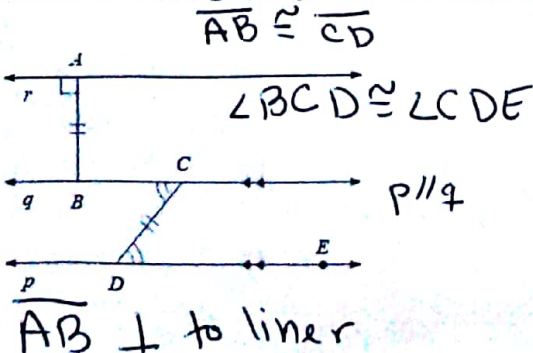 AB ≅ CD
A
r
∠BCD ≅ ∠CDE
C
q B
p//q
E
p D
AB ⊥ to line r